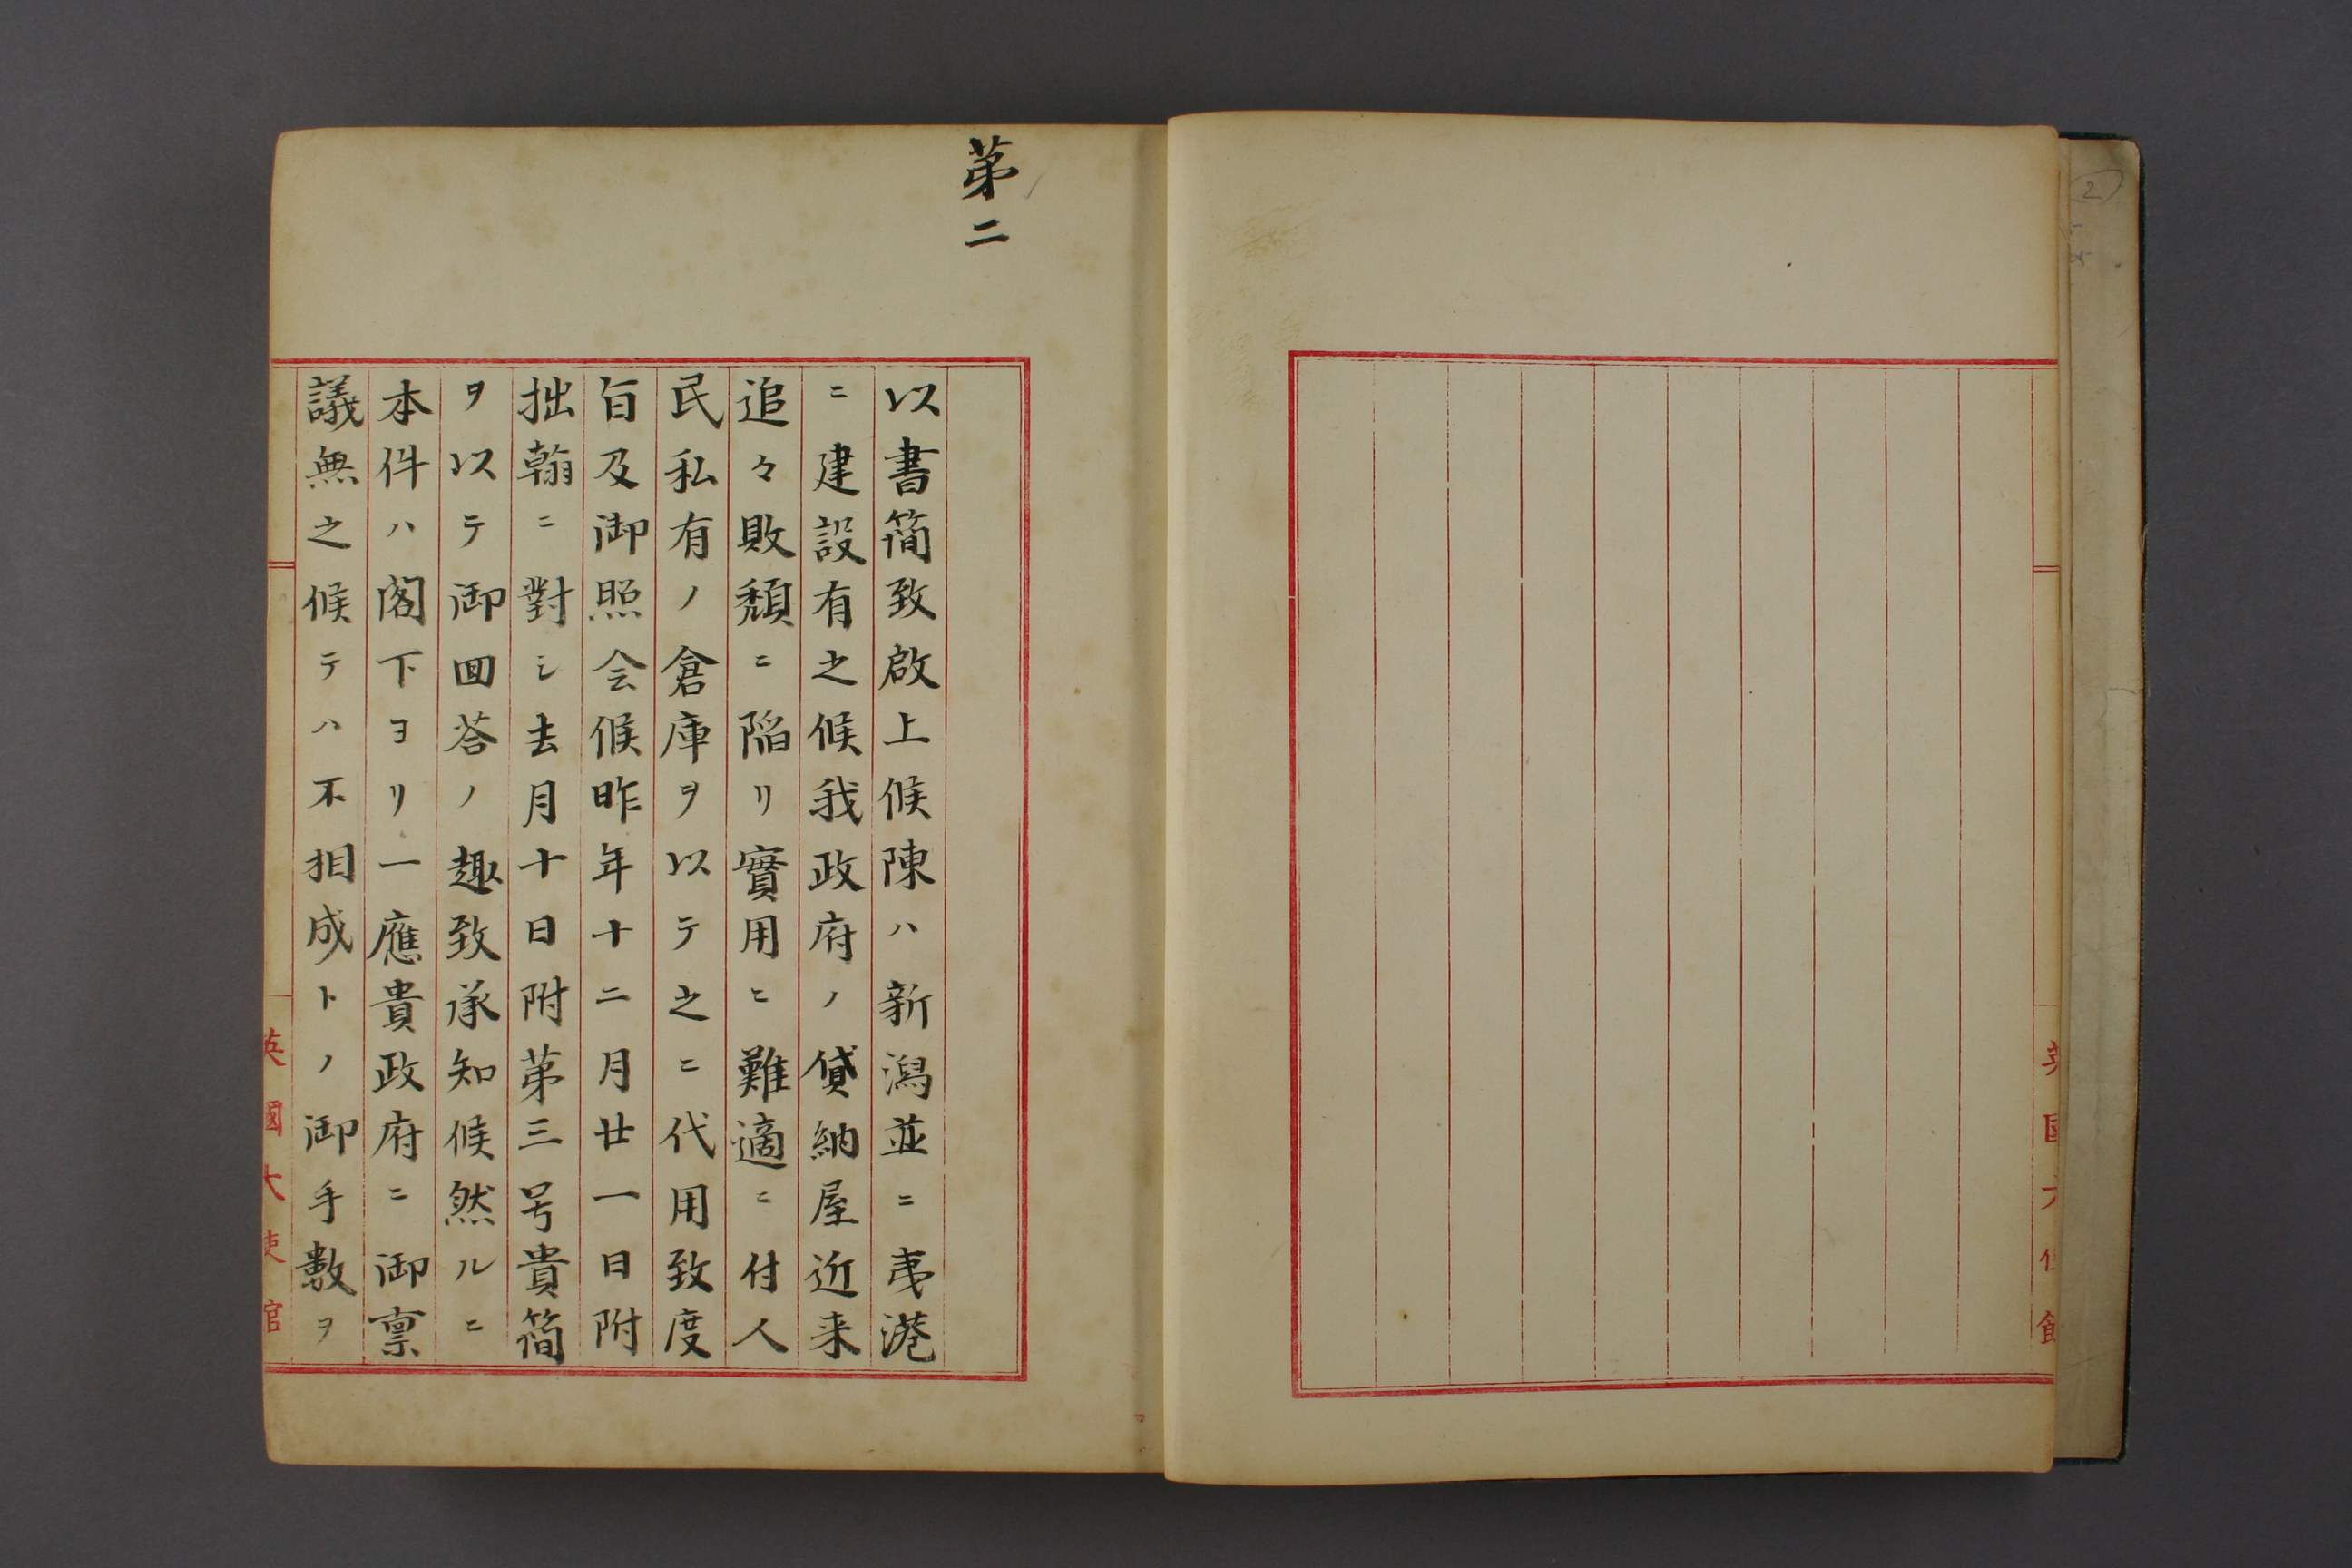 第二
以書簡致啟上候陳ハ新潟並ニ夷港
ニ建設有之候我政府ノ貸納屋近来
追々敗頽ニ陥リ實用ヒ難適ニ付人
民私有ノ倉庫ヲ以テ之ニ代用致度
旨及御照会候昨年十二月廿一日附
拙翰ニ對シ去月十日附第三号貴簡
ヲ以テ御回答ノ趣致承知候然ルニ
本件ハ閣下ヨリ一應貴政府ニ御禀
議無之候テハ不相成トノ御手數ヲ
英國大使館
英國大使館
2